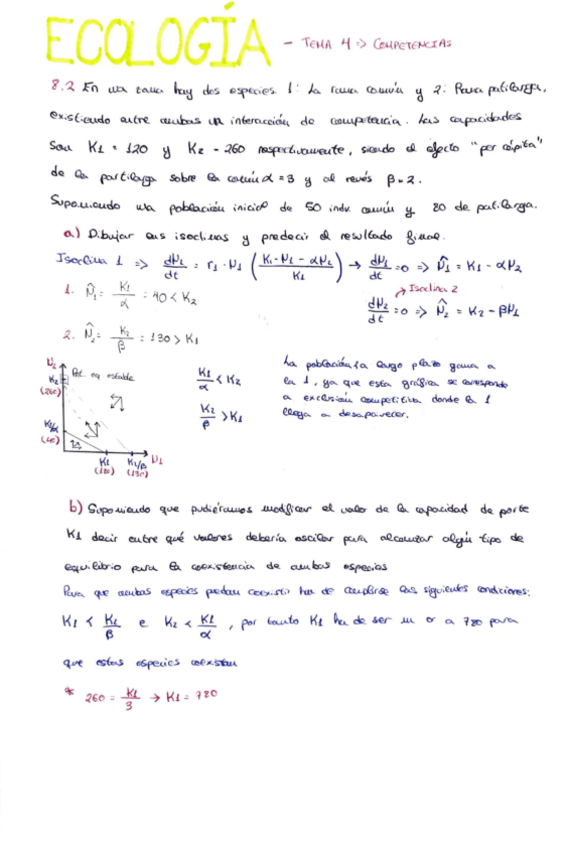 ECOLOGÍA - TEMA 4 => COMPETENCIAS
8.2 En una zona hay dos especies 1: La rana común y 2: Rana patilarga,
existiendo entre ambas un interacción de competencia. Las capacidades
son K1 = 120 y K2 = 260 respectivamente, siendo el efecto "per cápita"
de la partilarga sobre la común α = 3 y al revés β = 2.
Suponiendo una población inicial de 50 indv. común y 80 de patilarga.
a) Dibujar sus isoclinas y predecir el resultado final.
Isoclina 1 => dN1/dt = r1 · N1 (K1 - N1 - αN2 / K1) → dN1/dt = 0 => N̂1 = K1 - αN2
→ Isoclina 2
1. N̂1 = K1/α = 40 < K2
dN2/dt = 0 => N̂2 = K2 - βN1
2. N̂2 = K2/β = 130 > K1
N2
K2 (260)
Pt. eq estable
K1/α (40)
K1 (120)
K2/β (130)
N1
K1/α < K2
K2/β > K1
La población a largo plazo gana a
la 1, ya que esta gráfica se corresponde
a exclusión competitiva donde la 1
llega a desaparecer.
b) Suponiendo que pudiéramos modificar el valor de la capacidad de porte
K1 decir entre qué valores debería oscilar para alcanzar algún tipo de
equilibrio para la coexistencia de ambas especies
Para que ambas especies puedan coexistir ha de cumplirse las siguientes condiciones:
K1 < K2/β e K2 < K1/α , por tanto K1 ha de ser a 780 para
que estas especies coexistan
* 260 = K1/3 → K1 = 780